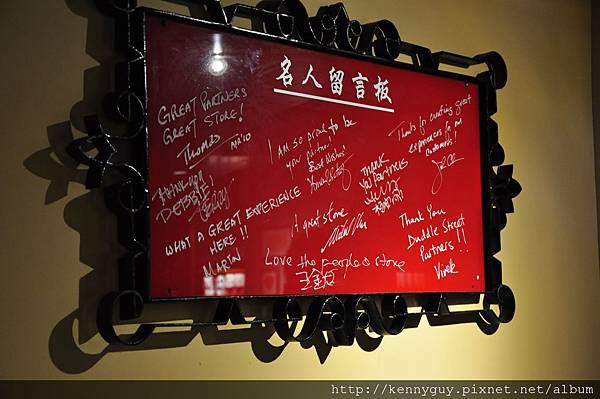 名人留言板
GREAT PARTNERS
GREAT STORE!
Thomas
I am so proud to be
your partner!
Best Wishes!
Thanks for creating great
experiences for our
customers!
THANK
YOU PARTNERS
THANK YOU
DEBBIE!
WHAT A GREAT EXPERIENCE
HERE!!
MARTIN
A great store
Love the people & store
Thank You
Duddle Street
Partners!!
Vivek
http://kennyguy.pixnet.net/album